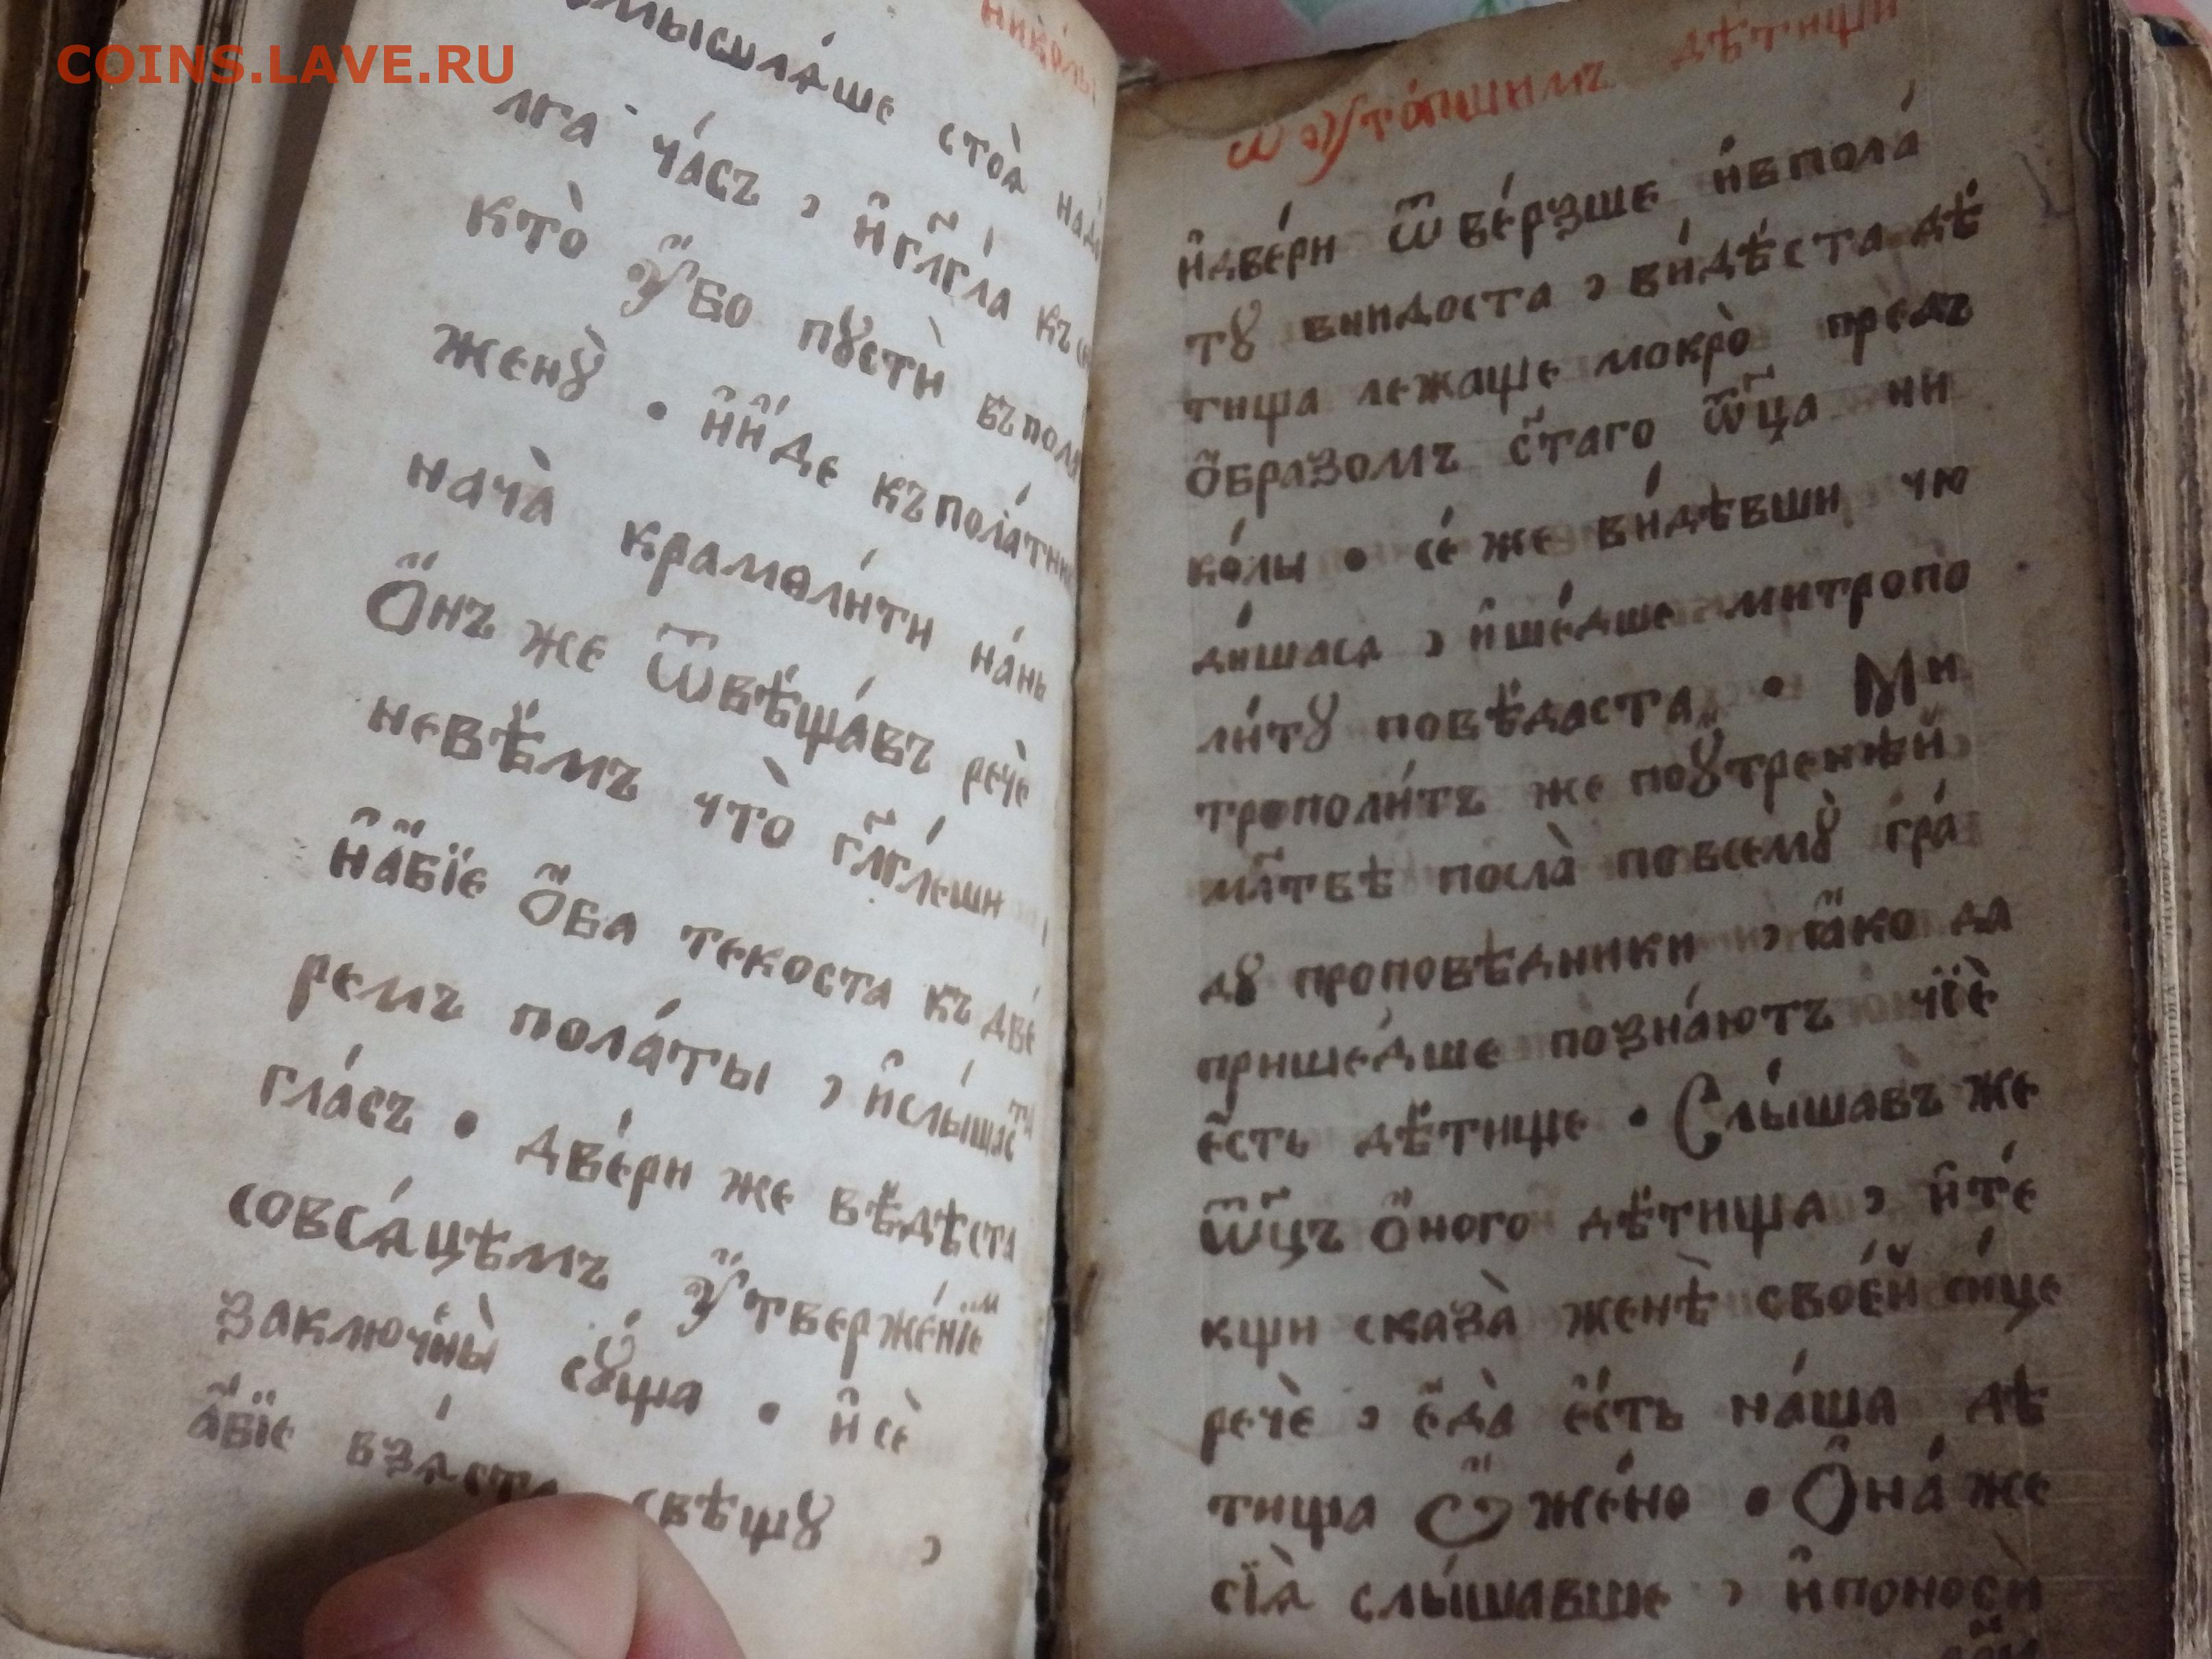 COINS.LAVE.RU
николы
мышлѧ́ше стоѧ̀
лга ча́съ, и҆гл҃гла къ
кто̀ ᲂу҆́бо пꙋстѝ въ
женꙋ̀ • и҆и҆́де къпола́т
нача̀ крамоли́ти на́нь
Ѻ҆́нъ же ѿвѣща́въ речѐ
невѣ́мъ что̀ гл҃гле́ши
и҆а҆́бїе ѻ҆́ба текоста къдве́
ремъ пола́ты, и҆слы́шаста
гла́съ • две́ри же вѣ́дѣста
совсѧ́цѣмъ ᲂу҆тверже́нїем
заключи́ны̀ сꙋ́ща • и҆ сѐ
а҆́бїе взѧ́ста свѣщꙋ ,
ѡ ᲂутопшимъ дѣтищи
и҆две́ри ѿве́рзше и҆впола́
тꙋ внидоста, ви́дѣста дѣ́
тища лежаще мокро̀ предъ
ѻ҆́бразомъ с҃таго ѿ҃ца ни
ко́лы • се́ же ви́дѣвши чю
ди́шасѧ, и҆ше́дше митропо
ли́тꙋ повѣ́даста • Ми
трополи́тъ же поᲂутренѣй
мл҃твѣ посла̀ повсемꙋ̀ гра́
дꙋ проповѣ́дники, ꙗ҆́ко да
прише́дше позна́ютъ чїѐ
е҆́сть дѣ́тище • Слы́шавъ же
ѿ҃цъ ѻ҆́ного дѣ́тища, и҆те́
кщи сказа̀ женѣ̀ свое́й си́це
речѐ, е҆да̀ е҆́сть на́ша дѣ
тища Ѽ же́но • Ѻ҆на́ же
сїѧ̀ слы́шавше, и҆поносѝ